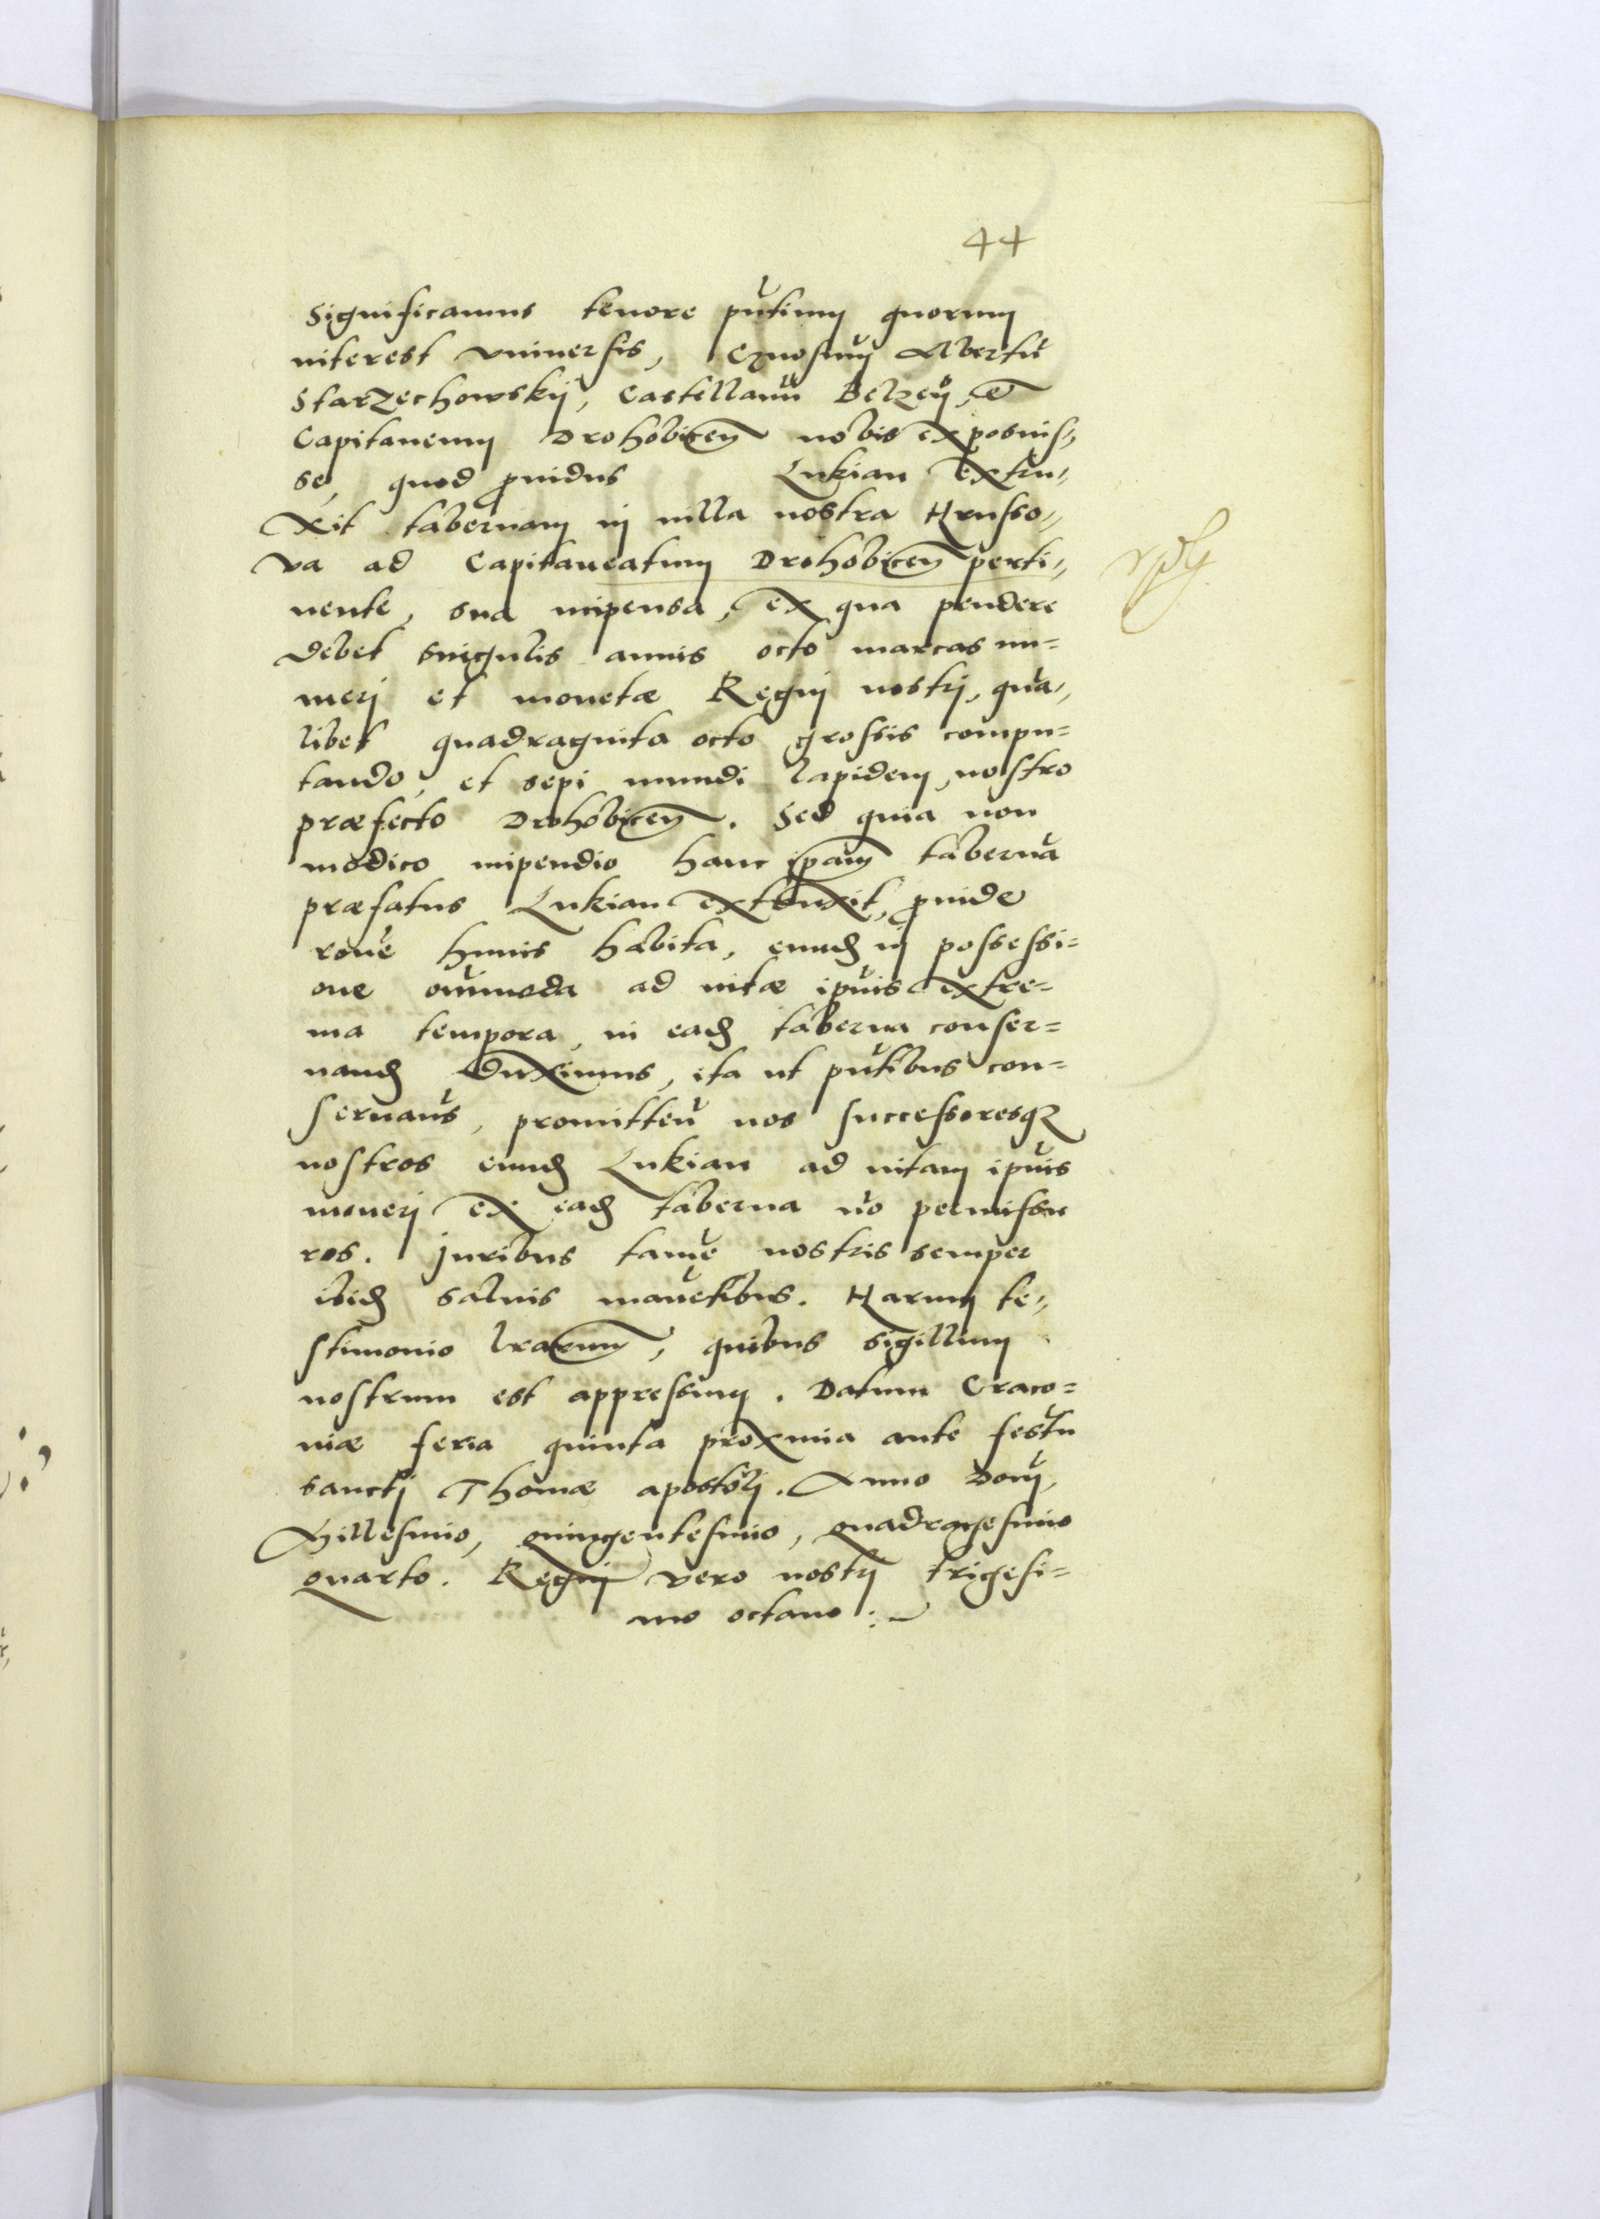 44
Significamus tenore pñtium quorum
interest vniuersis, Gnosum Albertũ
Starzechowskij, Castellanũ Belzeñ, et
Capitaneum Drohobiceñ nobis exposuis„
se, quod prouidus Lukian extru„
xit tabernam in uilla nostra Hrusso„
va ad Capitaneatum Drohobiceñ perti„
nente, sua impensa, ex qua pendere
debet singulis annis octo marcas nu=
meri et monetæ Regni nostri, qua„
libet quadraginta octo grossis compu=
tando, et sepi mundi lapidem, nostro
præfecto Drohobiceñ. Sed quia non
modico impendio hanc ipam tabernã
præfatus Lukian extruxit, proinde
rõne huius habita, eund in possessi=
one oĩmoda ad uitæ ipĩus extre=
ma tempora, in ead taberna conser=
uand duximus, ita ut pñtibus con=
seruaũs, promitteñ nos successoresq3
nostros eund Lukian ad uitam ipĩus
moueri ex ead taberna nõ permissu
ros. Juribus tamẽ nostris semper
ibid saluis manẽtibus. Harum te„
stimonio lrarum, quibus sigillum
nostrum est appressum. Datum Craco=
uiæ feria quinta proxima ante festũ
sancti Thomæ apostoli. Anno Doñi,
Millesimo, quingentesimo, quadragesimo
quarto. Regni vero nostri trigesi=
mo octauo :~